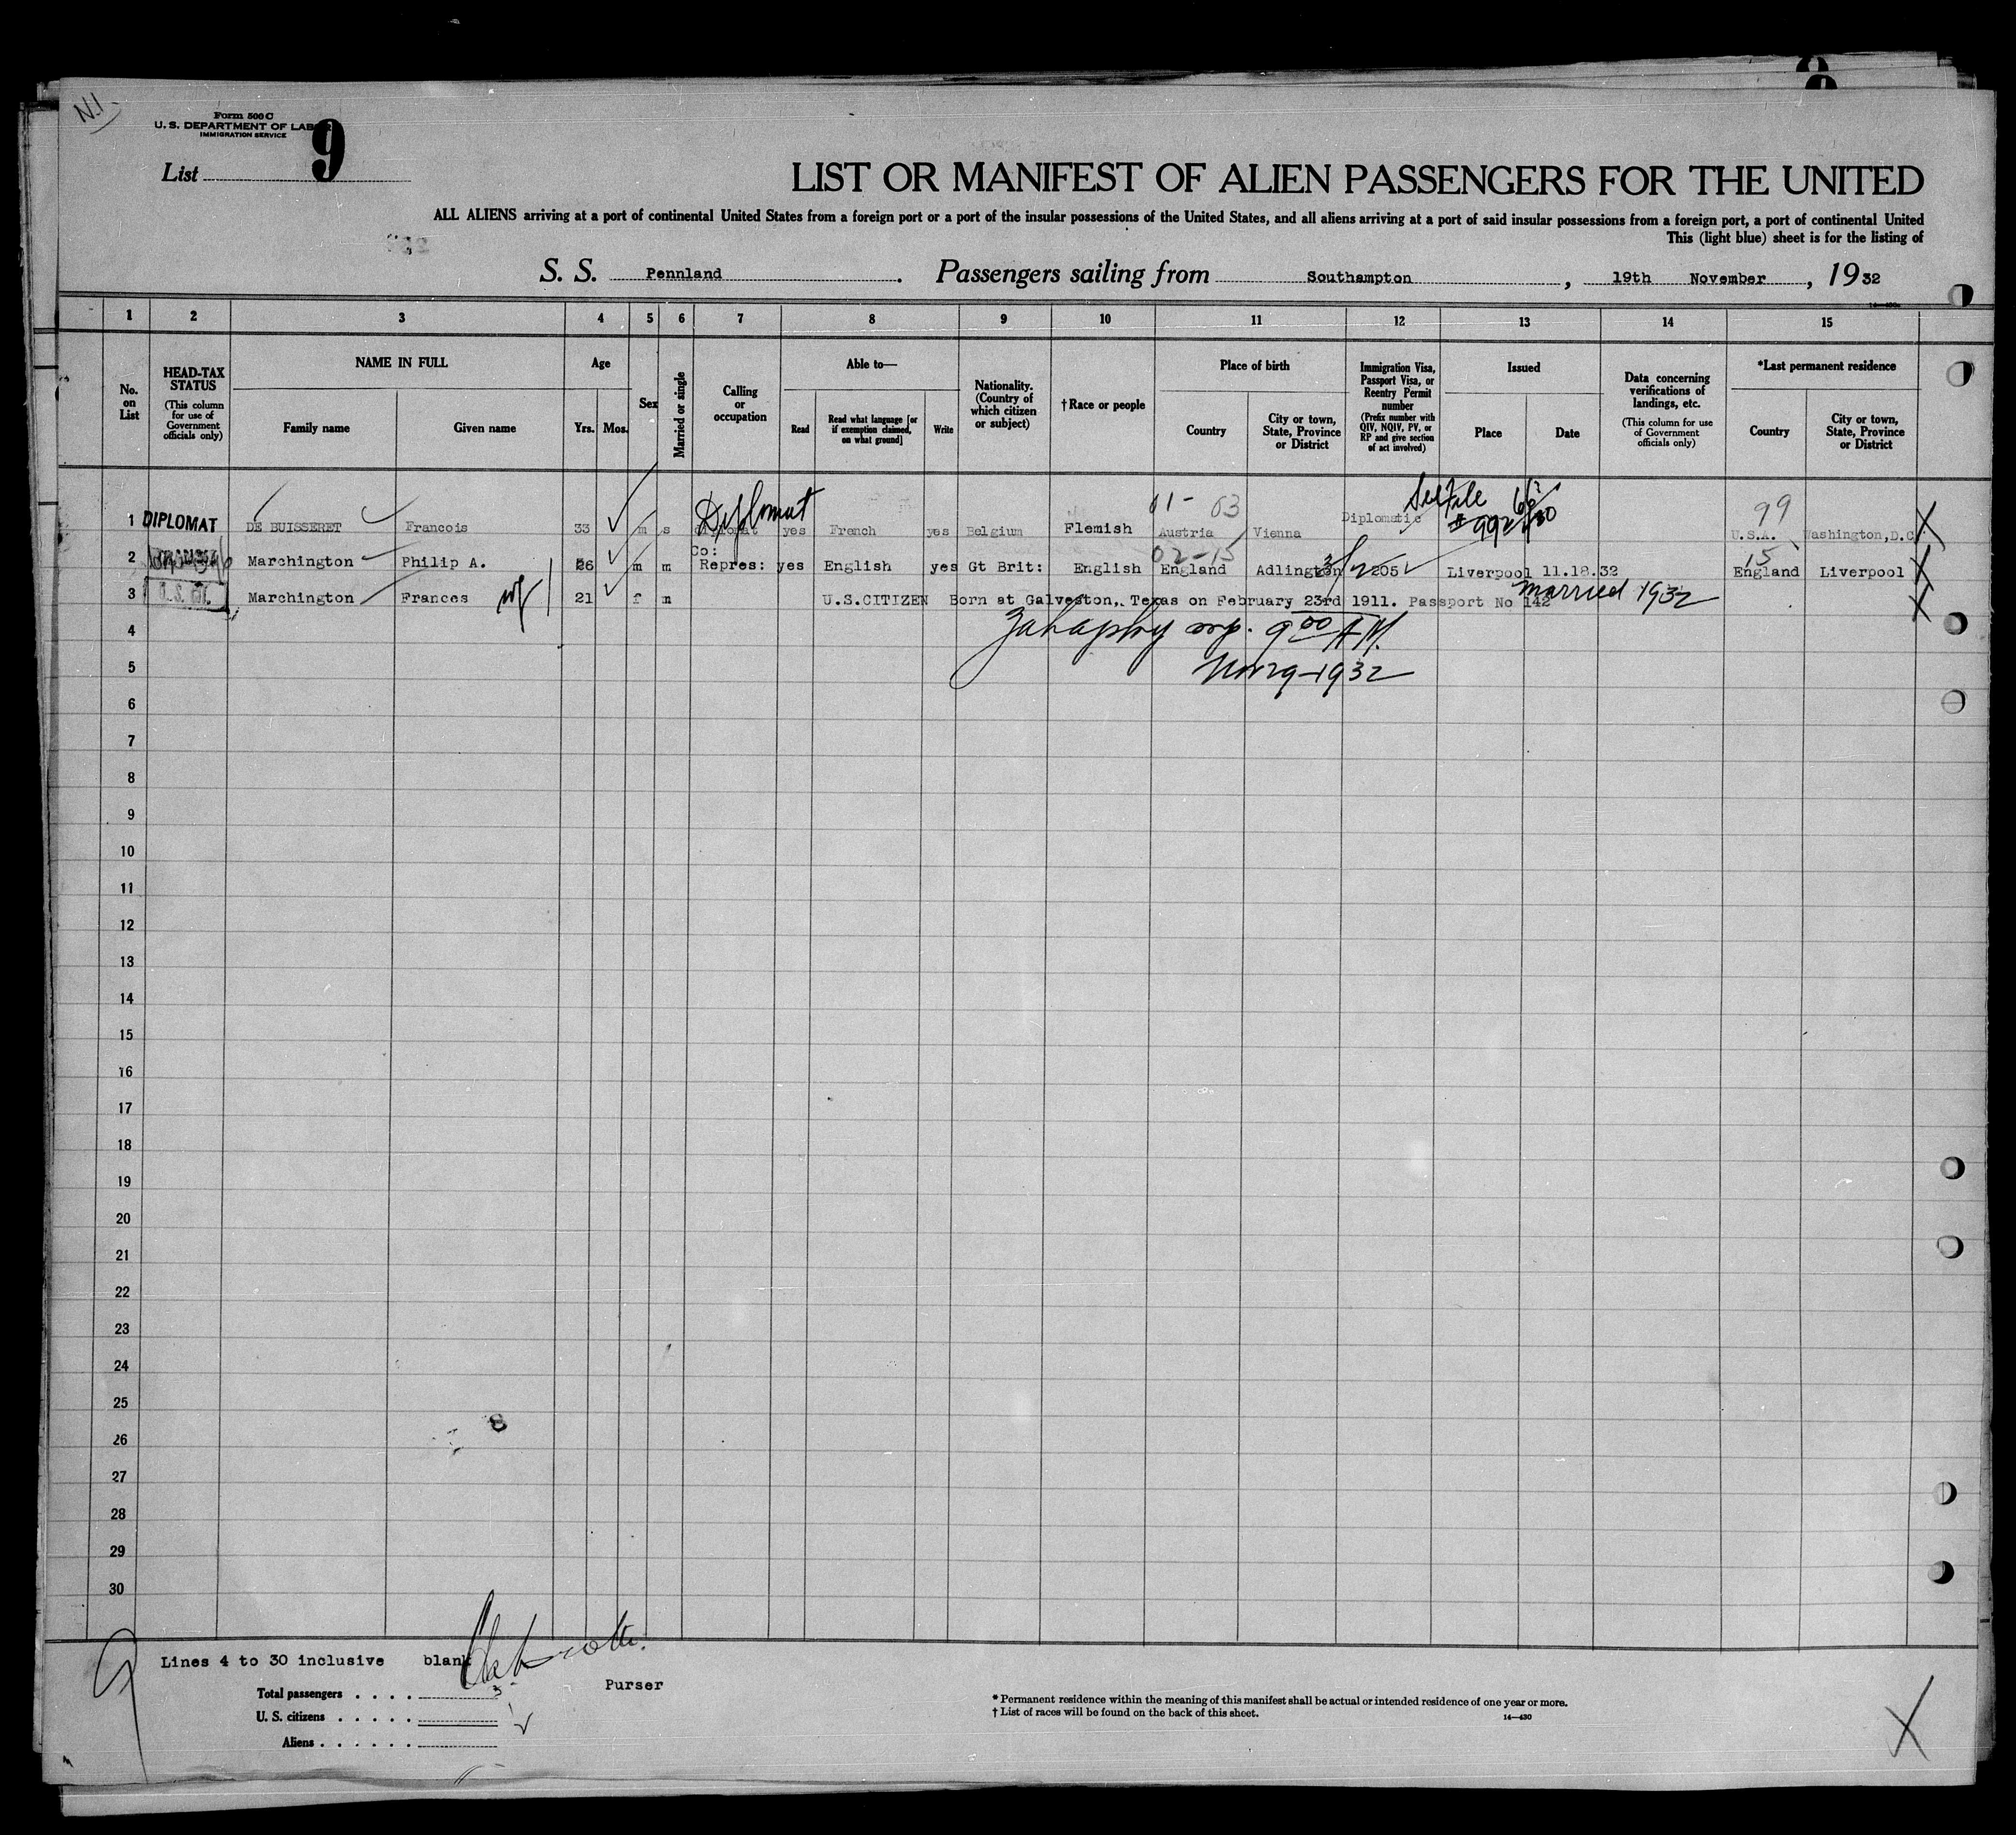 N.I.
Form 500 C
U. S. DEPARTMENT OF LABOR
IMMIGRATION SERVICE
List 9
LIST OR MANIFEST OF ALIEN PASSENGERS FOR THE UNITED
ALL ALIENS arriving at a port of continental United States from a foreign port or a port of the insular possessions of the United States, and all aliens arriving at a port of said insular possessions from a foreign port, a port of continental United
This (light blue) sheet is for the listing of
S. S. Pennland. Passengers sailing from Southampton, 19th November, 1932
1 2 3 4 5 6 7 8 9 10 11 12 13 14 15
No. on List
HEAD-TAX STATUS (This column for use of Government officials only)
NAME IN FULL
Family name Given name
Age
Yrs. Mos.
Sex
Married or single
Calling or occupation
Able to—
Read Read what language [or if exemption claimed, on what ground] Write
Nationality. (Country of which citizen or subject)
†Race or people
Place of birth
Country City or town, State, Province or District
Immigration Visa, Passport Visa, or Reentry Permit number (Prefix number with QIV, NQIV, PV, or RP and give section of act involved)
Issued
Place Date
Data concerning verifications of landings, etc. (This column for use of Government officials only)
*Last permanent residence
Country City or town, State, Province or District
Diplomat 01- 03 See File 99
1 DIPLOMAT DE BUISSERET Francois 33 m s diplomat yes French yes Belgium Flemish Austria Vienna Diplomatic U.S.A. Washington,D.C.
Co: 02-15 15
2 Marchington Philip A. 26 m m Repres: yes English yes Gt Brit: English England Adlington 3/2 205 Liverpool 11.18.32 England Liverpool
3 U.S. CIT. Marchington Frances wf 21 f m U.S.CITIZEN Born at Galveston, Texas on February 23rd 1911. Passport No 142 married 1932
4 9 00 A M.
5 Nov 29-1932
6
7
8
9
10
11
12
13
14
15
16
17
18
19
20
21
22
23
24
25
26
27
28
29
30
9 Lines 4 to 30 inclusive blank
Purser
Total passengers . . . . 3
U. S. citizens . . . . . 1
Aliens . . . . . . 2
* Permanent residence within the meaning of this manifest shall be actual or intended residence of one year or more.
† List of races will be found on the back of this sheet.
14—430